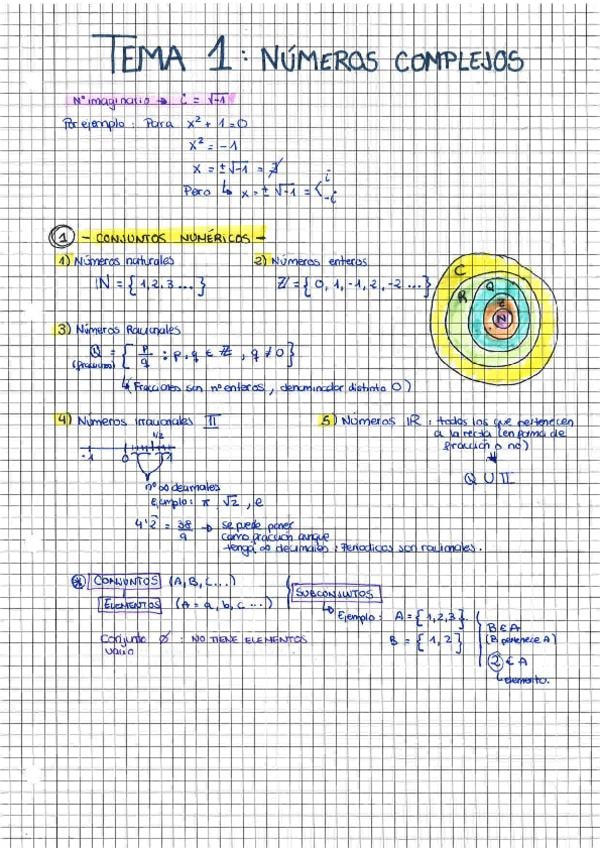 TEMA 1: NÚMEROS COMPLEJOS
Nº imaginario → i = √-1
Por ejemplo: Para x² + 1 = 0
x² = -1
x = ±√-1 = ∄
Pero ↳ x = ± √-1 = < i
-i
① - CONJUNTOS NUMÉRICOS -
1) Números naturales
ℕ = {1,2,3...}
2) Números enteros
ℤ = {0, 1, -1, 2, -2 ...}
C
R
Q
Z
N
3) Números Racionales
ℚ = { p/q : p, q ∈ ℤ, q ≠ 0}
(fracciones)
↳ (Fracciones son nº enteros, denominador distinto 0)
4) Números irracionales 𝕀
1/2
-1 0 1
nº ∞ decimales
ejemplo: π, √2, e
4'2̂ = 38/9 → se puede poner
como fracción aunque
tenga ∞ decimales: Periodicos son racionales.
5) Números ℝ: todos los que pertenecen
a la recta (en forma de
fracción o no)
ℚ ∪ 𝕀
* CONJUNTOS (A, B, C...)
ELEMENTOS (A = a, b, c ...)
Conjunto ∅ : NO TIENE ELEMENTOS
vacío
SUBCONJUTOS
↳ Ejemplo: A = {1,2,3}
B = {1,2}
B ∈ A
(B pertenece A)
② ∈ A
elemento.